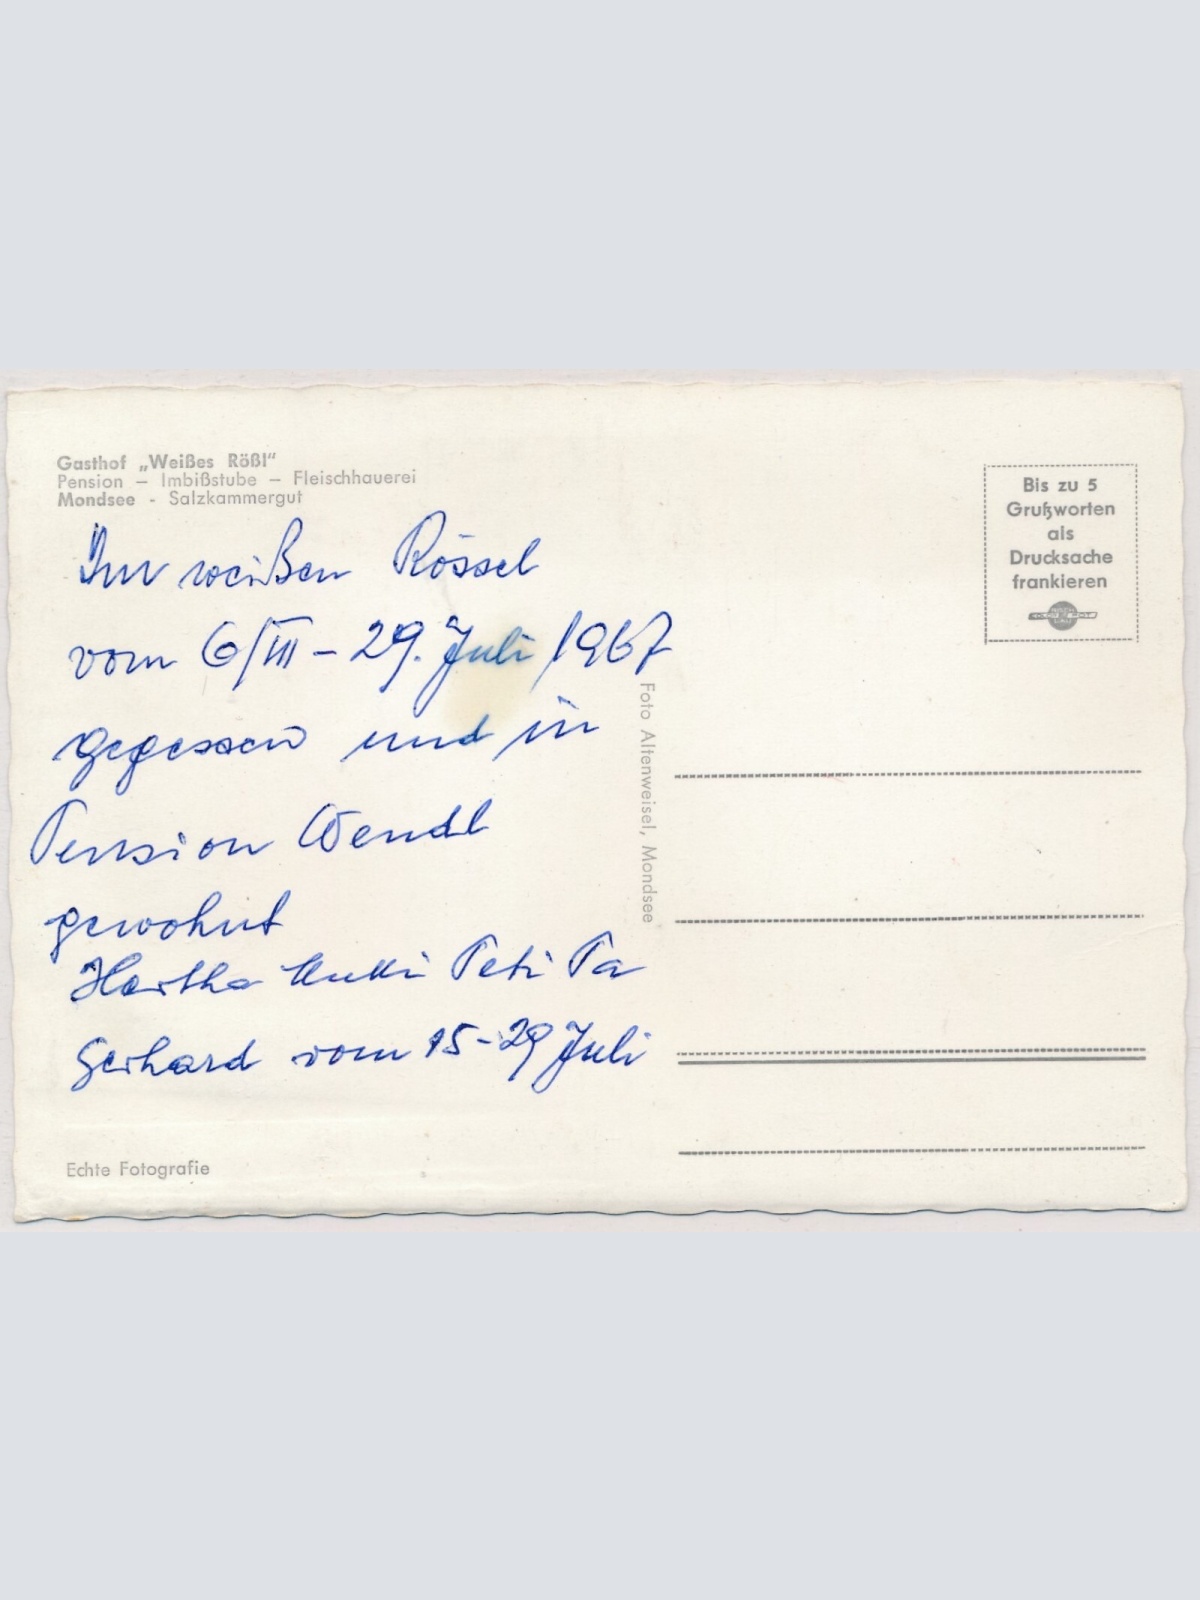 Gasthof „Weißes Rößl“
Pension – Imbißstube – Fleischhauerei
Mondsee - Salzkammergut
Im weißen Rössel
vom 6/VII – 29. Juli 1967
gegessen und in
Pension Wendl
gewohnt
Hertha Mutti Peti Pa
Gerhard vom 15-29 Juli
Echte Fotografie
Foto Altenweisel, Mondsee
Bis zu 5
Grußworten
als
Drucksache
frankieren